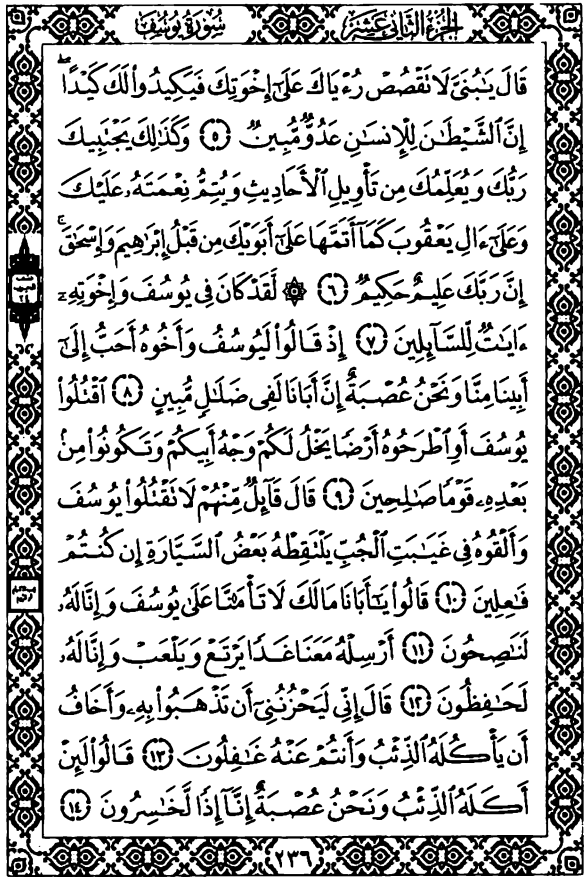 سُورَةُ يُوسُفَ
الجُزْءُ الثَّانِي عَشَرَ
قَالَ يَٰبُنَيَّ لَا تَقْصُصْ رُءْيَاكَ عَلَىٰٓ إِخْوَتِكَ فَيَكِيدُوا۟ لَكَ كَيْدًا ۖ
إِنَّ ٱلشَّيْطَٰنَ لِلْإِنسَٰنِ عَدُوٌّ مُّبِينٌ ٥ وَكَذَٰلِكَ يَجْتَبِيكَ
رَبُّكَ وَيُعَلِّمُكَ مِن تَأْوِيلِ ٱلْأَحَادِيثِ وَيُتِمُّ نِعْمَتَهُۥ عَلَيْكَ
وَعَلَىٰٓ ءَالِ يَعْقُوبَ كَمَآ أَتَمَّهَا عَلَىٰٓ أَبَوَيْكَ مِن قَبْلُ إِبْرَٰهِيمَ وَإِسْحَٰقَ ۚ
إِنَّ رَبَّكَ عَلِيمٌ حَكِيمٌ ٦ ۞ لَّقَدْ كَانَ فِى يُوسُفَ وَإِخْوَتِهِۦٓ
ءَايَٰتٌ لِّلسَّآئِلِينَ ٧ إِذْ قَالُوا۟ لَيُوسُفُ وَأَخُوهُ أَحَبُّ إِلَىٰٓ
أَبِينَا مِنَّا وَنَحْنُ عُصْبَةٌ إِنَّ أَبَانَا لَفِى ضَلَٰلٍ مُّبِينٍ ٨ ٱقْتُلُوا۟
يُوسُفَ أَوِ ٱطْرَحُوهُ أَرْضًا يَخْلُ لَكُمْ وَجْهُ أَبِيكُمْ وَتَكُونُوا۟ مِنۢ
بَعْدِهِۦ قَوْمًا صَٰلِحِينَ ٩ قَالَ قَآئِلٌ مِّنْهُمْ لَا تَقْتُلُوا۟ يُوسُفَ
وَأَلْقُوهُ فِى غَيَٰبَتِ ٱلْجُبِّ يَلْتَقِطْهُ بَعْضُ ٱلسَّيَّارَةِ إِن كُنتُمْ
فَٰعِلِينَ ١٠ قَالُوا۟ يَٰٓأَبَانَا مَا لَكَ لَا تَأْمَ۫نَّا عَلَىٰ يُوسُفَ وَإِنَّا لَهُۥ
لَنَٰصِحُونَ ١١ أَرْسِلْهُ مَعَنَا غَدًا يَرْتَعْ وَيَلْعَبْ وَإِنَّا لَهُۥ
لَحَٰفِظُونَ ١٢ قَالَ إِنِّى لَيَحْزُنُنِىٓ أَن تَذْهَبُوا۟ بِهِۦ وَأَخَافُ
أَن يَأْكُلَهُ ٱلذِّئْبُ وَأَنتُمْ عَنْهُ غَٰفِلُونَ ١٣ قَالُوا۟ لَئِنْ
أَكَلَهُ ٱلذِّئْبُ وَنَحْنُ عُصْبَةٌ إِنَّآ إِذًا لَّخَٰسِرُونَ ١٤
٢٣٦